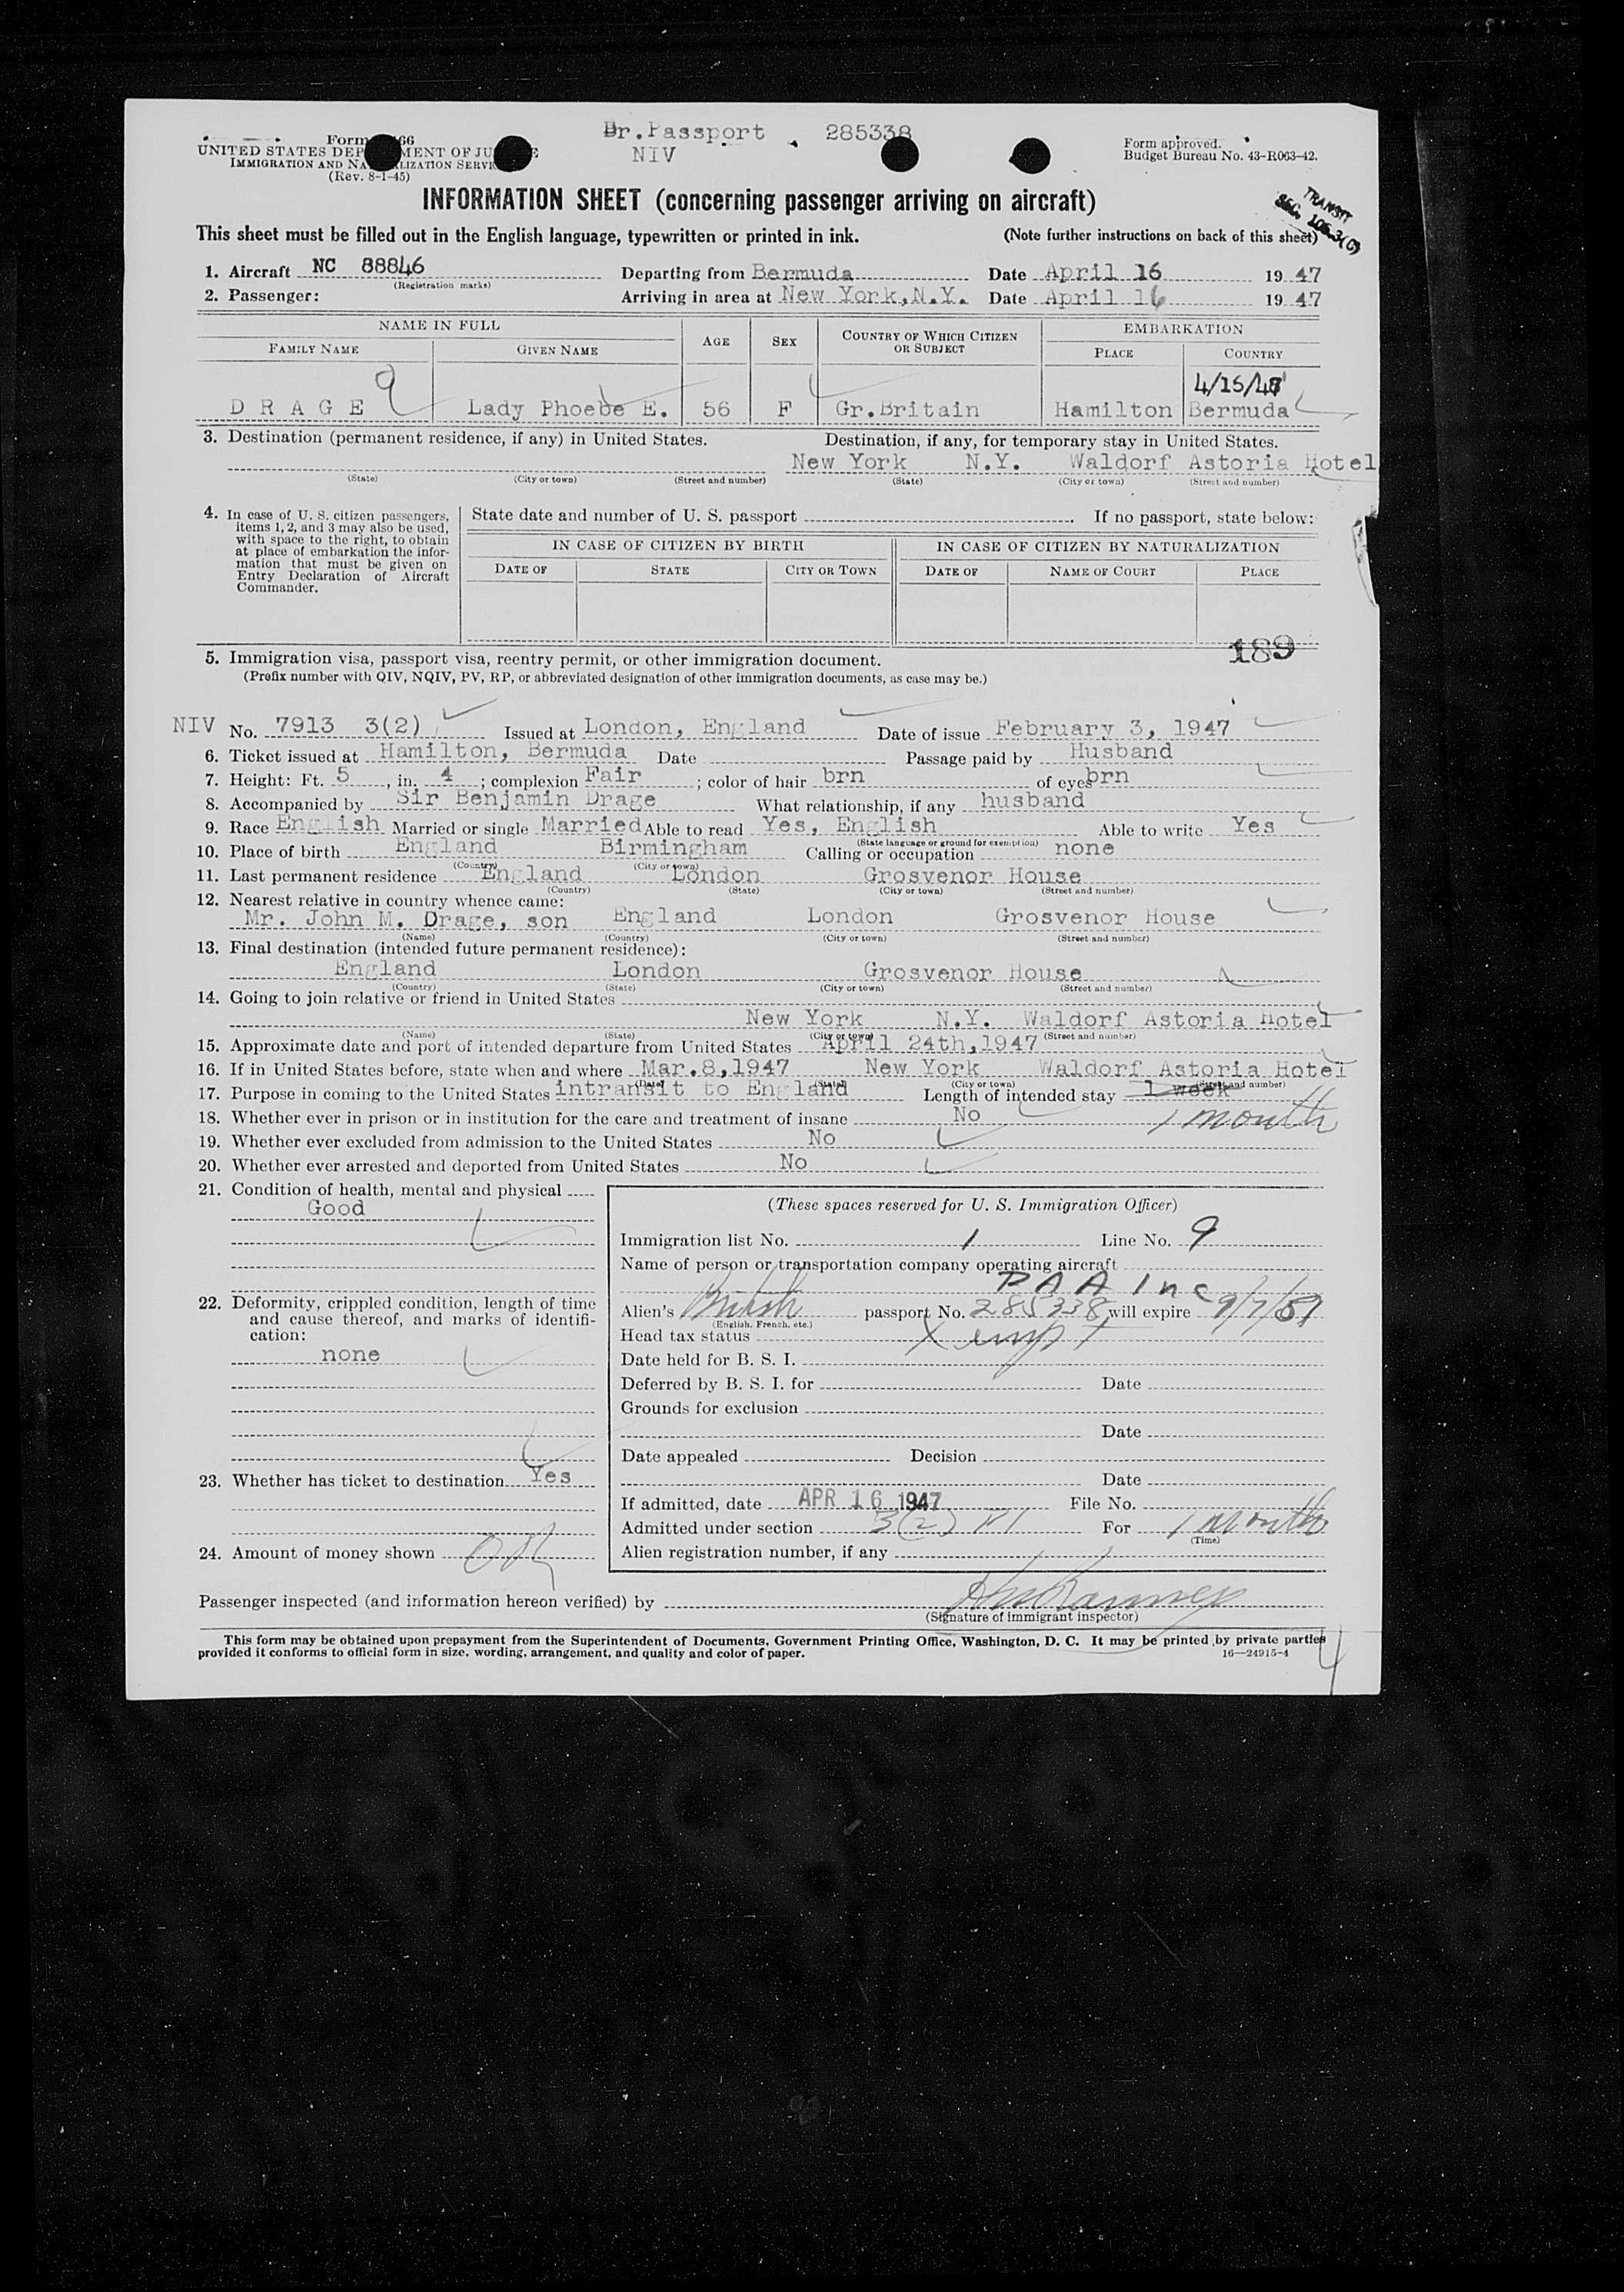 Br.Passport 285338
NIV
Form 66
UNITED STATES DEP MENT OF JU E
IMMIGRATION AND NA LIZATION SERVI
(Rev. 8-1-45)
Form approved.
Budget Bureau No. 43-R063-42.
INFORMATION SHEET (concerning passenger arriving on aircraft)
TRANSIT
SEC. 106.3(G)
This sheet must be filled out in the English language, typewritten or printed in ink. (Note further instructions on back of this sheet)
1. Aircraft NC 88846 Departing from Bermuda Date April 16 1947
(Registration marks)
2. Passenger: Arriving in area at New York,N.Y. Date April 16 1947
NAME IN FULL AGE SEX COUNTRY OF WHICH CITIZEN OR SUBJECT EMBARKATION
FAMILY NAME GIVEN NAME PLACE COUNTRY
9 4/15/47
D R A G E Lady Phoebe E. 56 F Gr.Britain Hamilton Bermuda
3. Destination (permanent residence, if any) in United States. Destination, if any, for temporary stay in United States.
New York N.Y. Waldorf Astoria Hotel
(State) (City or town) (Street and number) (State) (City or town) (Street and number)
4. In case of U. S. citizen passengers, items 1, 2, and 3 may also be used, with space to the right, to obtain at place of embarkation the information that must be given on Entry Declaration of Aircraft Commander.
State date and number of U. S. passport If no passport, state below:
IN CASE OF CITIZEN BY BIRTH IN CASE OF CITIZEN BY NATURALIZATION
DATE OF STATE CITY OR TOWN DATE OF NAME OF COURT PLACE
189
5. Immigration visa, passport visa, reentry permit, or other immigration document.
(Prefix number with QIV, NQIV, PV, RP, or abbreviated designation of other immigration documents, as case may be.)
NIV No. 7913 3(2) Issued at London, England Date of issue February 3, 1947
6. Ticket issued at Hamilton, Bermuda Date Passage paid by Husband
7. Height: Ft. 5, in. 4; complexion Fair; color of hair brn of eyes brn
8. Accompanied by Sir Benjamin Drage What relationship, if any husband
9. Race English Married or single Married Able to read Yes, English Able to write Yes
(State language or ground for exemption)
10. Place of birth England Birmingham Calling or occupation none
(Country) (City or town)
11. Last permanent residence England London Grosvenor House
(Country) (State) (City or town) (Street and number)
12. Nearest relative in country whence came:
Mr. John M. Drage, son England London Grosvenor House
(Name) (Country) (City or town) (Street and number)
13. Final destination (intended future permanent residence):
England London Grosvenor House
(Country) (State) (City or town) (Street and number)
14. Going to join relative or friend in United States
New York N.Y. Waldorf Astoria Hotel
(Name) (State) (City or town) (Street and number)
15. Approximate date and port of intended departure from United States April 24th,1947
16. If in United States before, state when and where Mar.8,1947 New York Waldorf Astoria Hotel
(Date) (State) (City or town) (Street and number)
17. Purpose in coming to the United States intransit to England Length of intended stay 1 week
18. Whether ever in prison or in institution for the care and treatment of insane No 1 month
19. Whether ever excluded from admission to the United States No
20. Whether ever arrested and deported from United States No
21. Condition of health, mental and physical
Good
22. Deformity, crippled condition, length of time and cause thereof, and marks of identification:
none
23. Whether has ticket to destination Yes
24. Amount of money shown OK
(These spaces reserved for U. S. Immigration Officer)
Immigration list No. 1 Line No. 9
Name of person or transportation company operating aircraft
PAA Inc
Alien's British passport No. 285338 will expire 9/7/51
(English, French, etc.)
Head tax status Xempt
Date held for B. S. I.
Deferred by B. S. I. for Date
Grounds for exclusion
Date
Date appealed Decision
Date
If admitted, date APR 16 1947 File No.
Admitted under section 3(2) For 1 month
(Time)
Alien registration number, if any
Passenger inspected (and information hereon verified) by
(Signature of immigrant inspector)
This form may be obtained upon prepayment from the Superintendent of Documents, Government Printing Office, Washington, D. C. It may be printed by private parties
provided it conforms to official form in size, wording, arrangement, and quality and color of paper. 16—24915-4
4